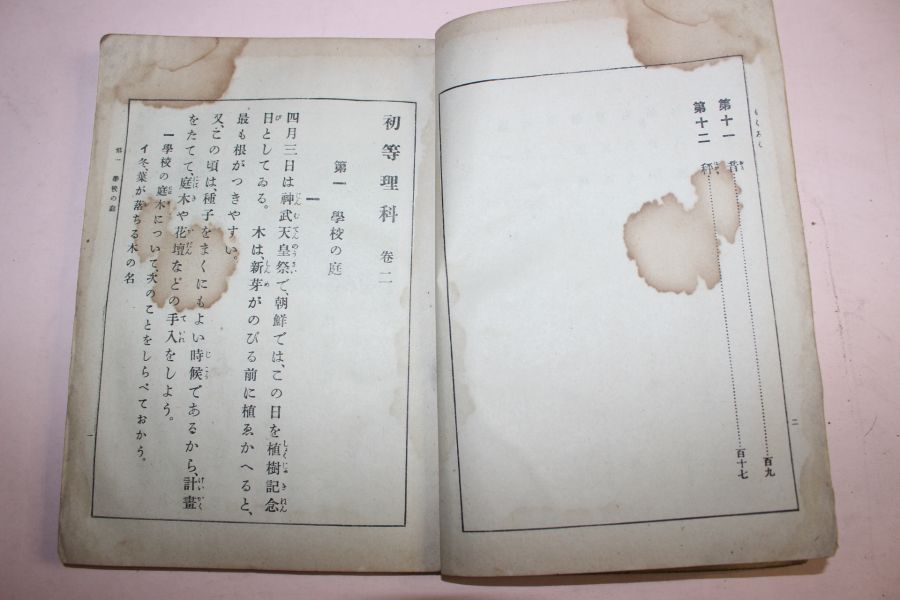 もくろく
第十一 音 百九
第十二 秤 百十七
二
初等理科 卷二
第一 學校の庭
一
四月三日は神武天皇祭で、朝鮮では、この日を植樹記念
日としてゐる。木は、新芽がのびる前に植ゑかへると、
最も根がつきやすい。
又、この頃は、種子をまくにもよい時候であるから、計畫
をたてて、庭木や花壇などの手入をしよう。
一 學校の庭木について、次のことをしらべておかう。
イ 冬、葉が落ちる木の名
第一 學校の庭
一